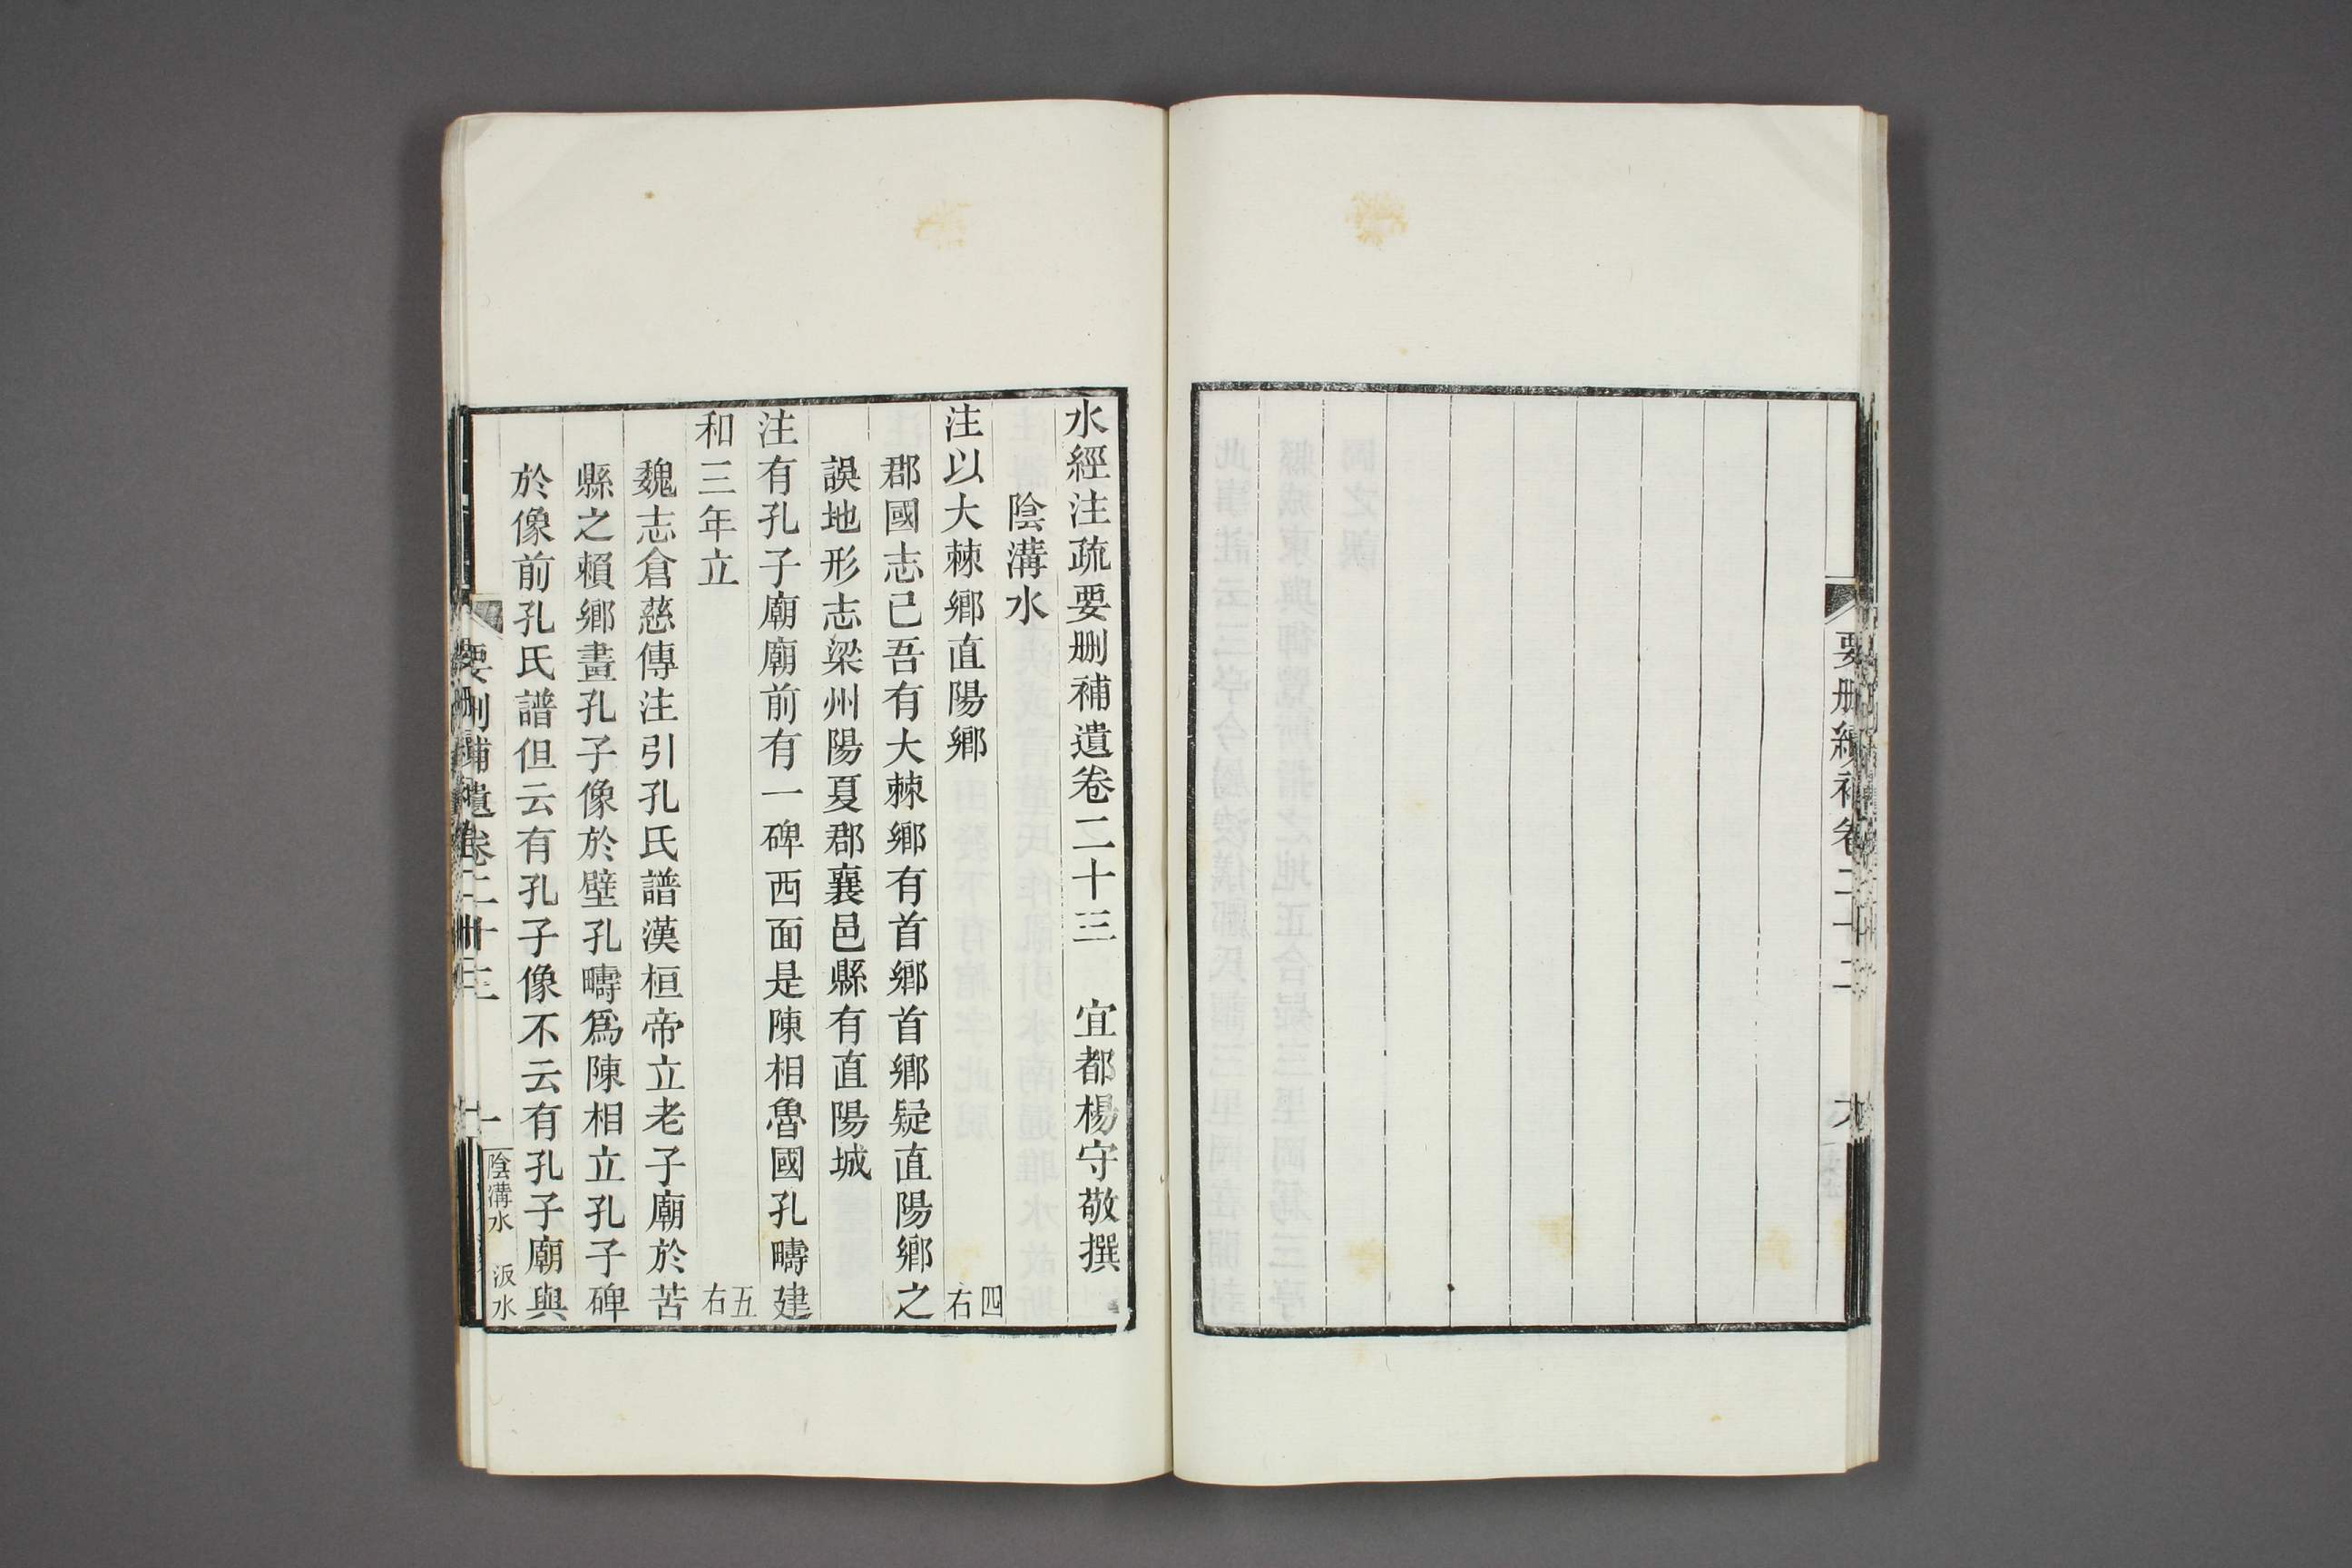 要删續補卷二十二
水經注疏要删補遺卷二十三　宜都楊守敬撰
陰溝水
注以大棘鄉直陽鄉　四右
郡國志己吾有大棘鄉有首鄉首鄉疑直陽鄉之
誤地形志梁州陽夏郡襄邑縣有直陽城
注有孔子廟廟前有一碑西面是陳相魯國孔疇建
和三年立　五右
魏志倉慈傳注引孔氏譜漢桓帝立老子廟於苦
縣之賴鄉畫孔子像於壁孔疇爲陳相立孔子碑
於像前孔氏譜但云有孔子像不云有孔子廟與
要删補遺卷二十三　一　陰溝水　汳水